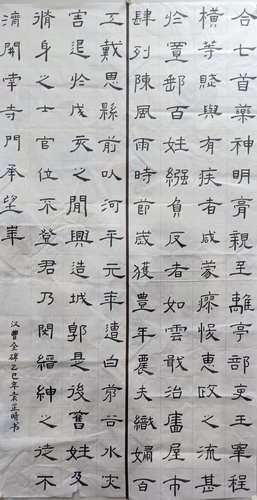 合七首藥神明膏親至離亭部吏王宰程
橫等賦與有疾者咸蒙瘳悛惠政之流甚
於置郵百姓繦負反者如雲戢治廧屋市
肆列陳風雨時節歲獲豐年農夫織婦百
工戴恩縣前以河平元年遭白茅谷水災
害退於戊亥之間興造城郭是後舊姓及
脩身之士官位不登君乃閔縉紳之徒不
濟開南寺門承望華
汉曹全碑乙巳年袁芷晴书